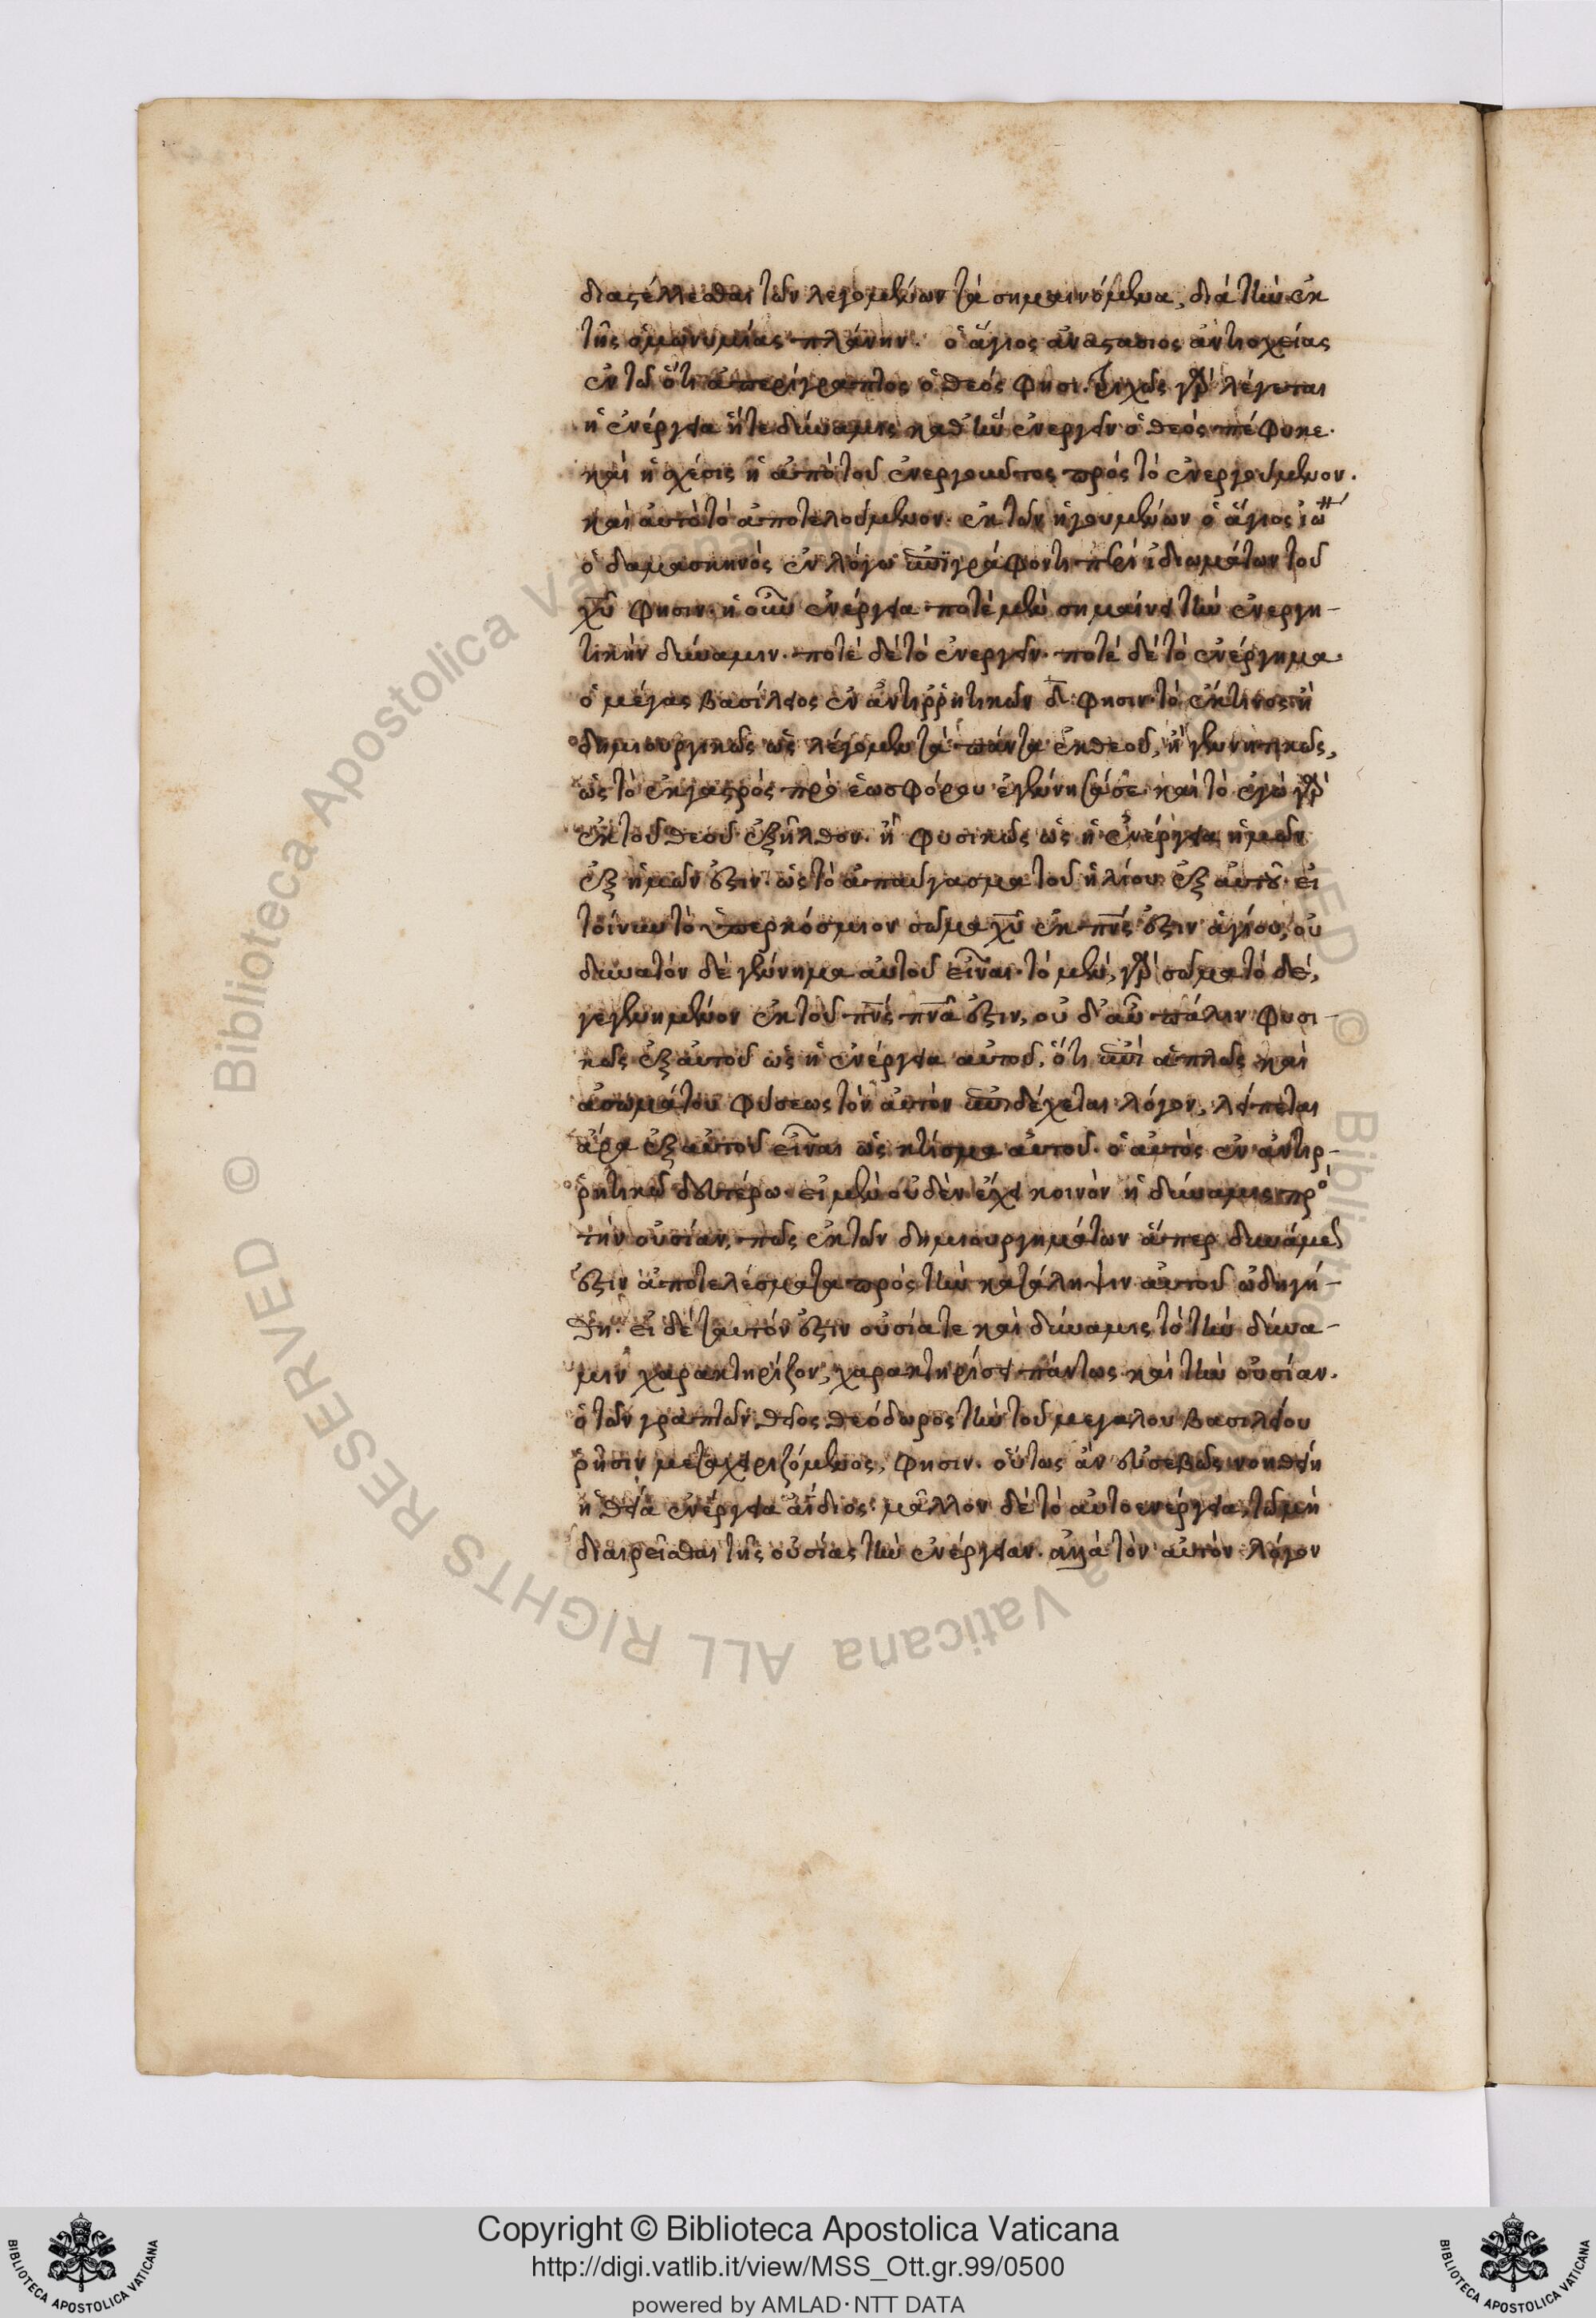 διαστέλλεσθαι τῶν λεγομένων τὰ σημαινόμενα, διὰ τὴν ἐκ
τῆς ὁμωνυμίας πλάνην. ὁ ἅγιος ἀναστάσιος ἀντιοχείας
ἐν τῶ ὅτι ἀπερίγραπτος ὁ θεός φησι. τριχῶς γὰρ λέγεται
ἡ ἐνέργεια ἥτε δύναμις καθ ἣν ἐνεργεῖν ὁ θεὸς πέφυκε.
καὶ ἡ σχέσις ἡ ἀπὸ τοῦ ἐνεργοῦντος πρὸς τὸ ἐνεργούμενον.
καὶ αὐτὸ τὸ ἀποτελούμενον. ἐκ τῶν ἡγουμένων ὁ ἅγιος ἰω
ὁ δαμασκηνὸς ἐν λόγω ἐπιγράφοντι περὶ ἰδιωμάτων τοῦ
χῦ φησιν. ἡ οὖν ἐνέργεια ποτὲ μὲν σημαίνει τὴν ἐνεργη-
τικὴν δύναμιν. ποτὲ δὲ τὸ ἐνεργεῖν. ποτὲ δὲ τὸ ἐνέργημα.
ὁ μέγας βασίλειος ἐν ἀντιῤῥητικῶν δ φησιν. τὸ ἔκτινος ἢ
δημιουργικῶς ὡς λέγομεν τὰ πάντα ἐκ θεοῦ, ἢ γεννητικῶς,
ὡς τὸ ἐκ γαστρὸς πρὸ ἑωσφόρου ἐγέννησά σε. καὶ τὸ ἐγὼ γὰρ
ἐκ τοῦ θεοῦ ἐξῆλθον. ἢ φυσικῶς ὡς ἡ ἐνέργεια ἡμῶν
ἐξ ἡμῶν ἐστιν. ὡς τὸ ἀπαύγασμα τοῦ ἡλίου ἐξ αὐτοῦ. εἰ
τοίνυν τὸ ὑπερκόσμιον σῶμα χῦ ἐκ πνς ἐστιν ἁγίου, οὐ
δυνατὸν δὲ γέννημα αὐτοῦ εἶναι. τὸ μὲν, γὰρ σῶμα τὸ δὲ,
γεγεννημένον ἐκ τοῦ πνς πνα ἐστιν, οὐ δ αὖ πάλιν φυσι-
κῶς ἐξ αὐτοῦ ὡς ἡ ἐνέργεια αὐτοῦ, ὅτι ἐπὶ ἁπλῶς καὶ
ἀσωμάτου φύσεως τὸν αὐτὸν ἐπιδέχεται λόγον, λείπεται
ἄρα ἐξ αὐτοῦ εἶναι ὡς κτίσμα αὐτοῦ. ὁ αὐτὸς ἐν ἀντιρ-
ῥητικῶ δευτέρω. εἰ μὲν οὐδὲν ἔχει κοινὸν ἡ δύναμις πρὸ
τὴν οὐσίαν, πῶς ἐκ τῶν δημιουργημάτων ἅπερ δυνάμε
ἐστιν ἀποτελέσματα πρὸς τὴν κατάληψιν αὐτοῦ ὡδηγή-
θη. εἰ δὲ ταυτόν ἐστιν οὐσία τε καὶ δύναμις, τὸ τὴν δύνα-
μιν χαρακτηρίζον, χαρακτηρίσει πάντως καὶ τὴν οὐσίαν.
ὁ τῶν γραπτῶν θεῖος θεόδωρος τὴν τοῦ μεγάλου βασιλείου
ῥῆσιν μεταχειριζόμενος, φησιν. οὕτως ἂν εὐσεβῶς νοηθείη
ἡ θεία ἐνέργεια ἀΐδιος. μᾶλλον δὲ τὸ αὐτοενέργεια, τῶ μὴ
διαιρεῖσθαι τῆς οὐσίας τὴν ἐνέργειαν. κατὰ τὸν αὐτὸν λόγον
© Biblioteca Apostolica Vaticana ALL RIGHTS RESERVED
Copyright © Biblioteca Apostolica Vaticana
http://digi.vatlib.it/view/MSS_Ott.gr.99/0500
powered by AMLAD·NTT DATA
BIBLIOTECA APOSTOLICA VATICANA
BIBLIOTECA APOSTOLICA VATICANA